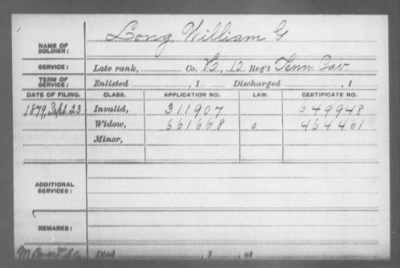 NAME OF SOLDIER: Long William G
SERVICE: Late rank, Co. 12 Reg't Tenn Cav.
TERM OF SERVICE: Enlisted , 1 Discharged , 1
DATE OF FILING. CLASS. APPLICATION NO. LAW. CERTIFICATE NO.
1879 Sept 23 Invalid, 311907 349948
Widow, 661668 464461
Minor,
ADDITIONAL SERVICES:
REMARKS:
Died , 1 , at